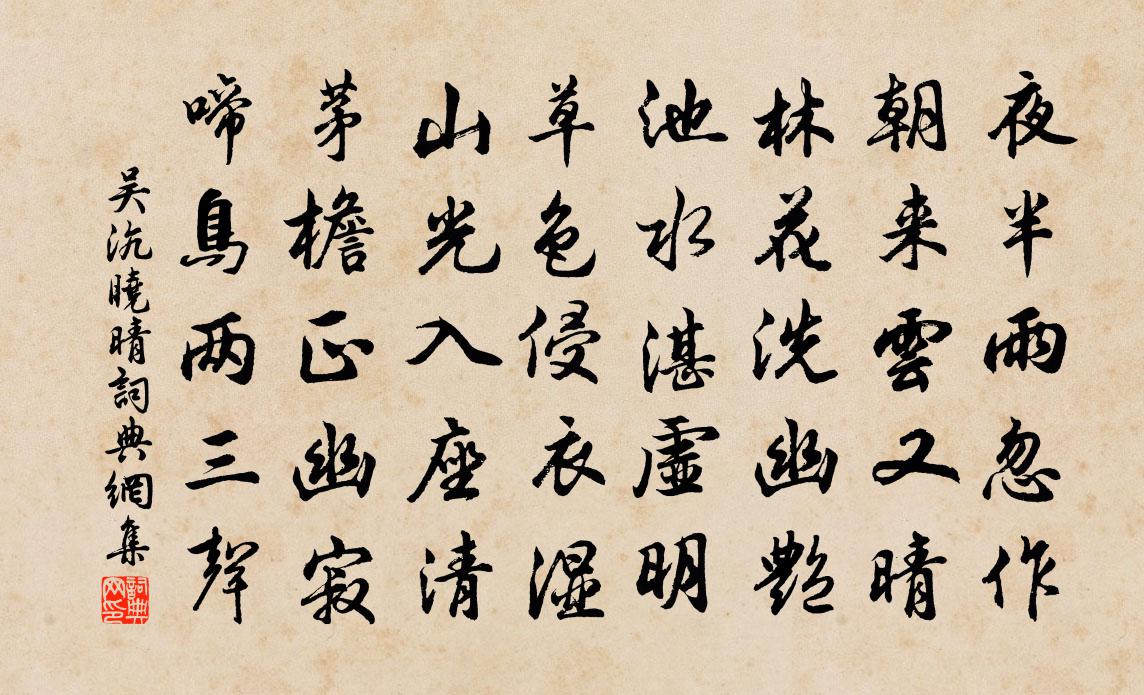 夜半雨忽作
朝来雲又晴
林花洗幽艷
池水湛虚明
草色侵衣湿
山光入座清
茅檐正幽寂
啼鳥两三聲
吴沆曉晴詞典網集
詞典網印